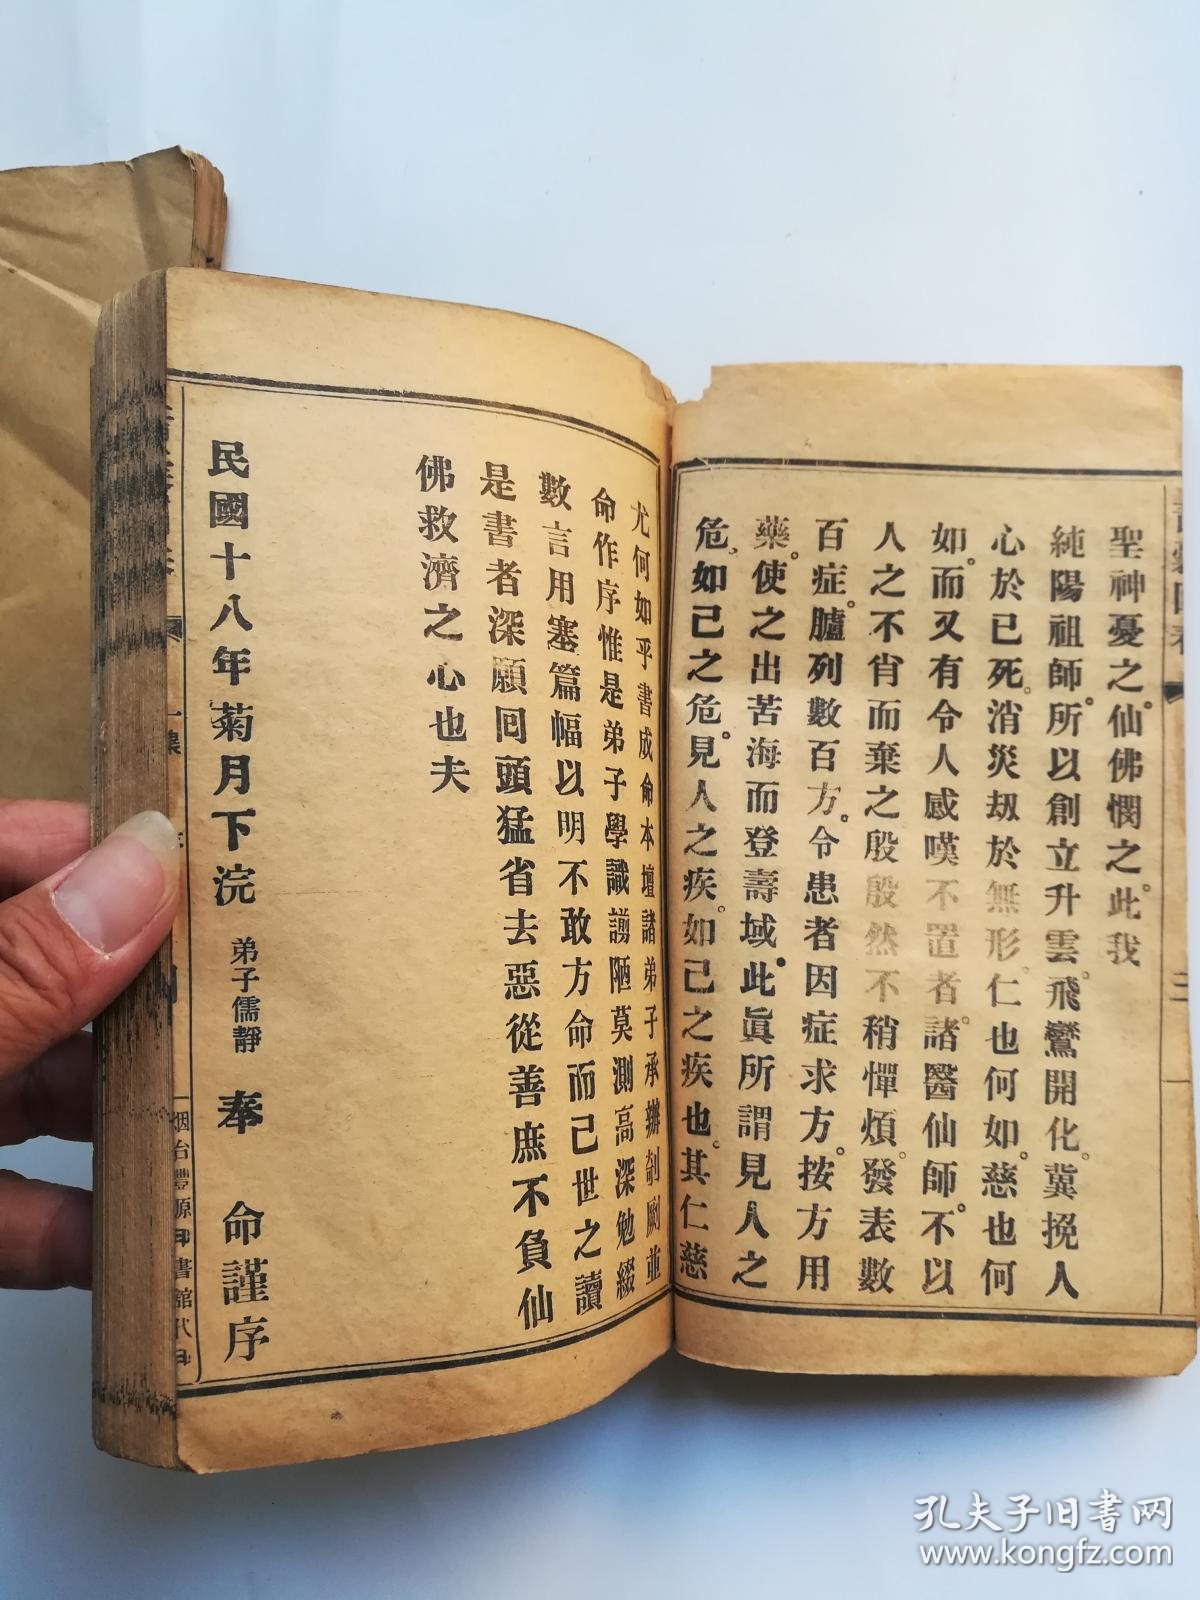 聖神憂之。仙佛憫之。此我
純陽祖師。所以創立升雲。飛鸞開化。冀挽人
心於已死。消災刼於無形。仁也何如。慈也何
如。而又有令人感嘆不置者。諸醫仙師。不以
人之不肖而棄之殷殷然不稍憚煩。發表數
百症。臚列數百方。令患者因症求方。按方用
藥。使之出苦海而登壽域。此眞所謂見人之
危。如己之危。見人之疾。如己之疾也。其仁慈
尤何如乎書成命本壇諸弟子承辦剞劂並
命作序惟是弟子學識謭陋莫測高深勉綴
數言用塞篇幅以明不敢方命而已世之讀
是書者深願回頭猛省去惡從善庶不負仙
佛救濟之心也夫
民國十八年菊月下浣 弟子儒靜 奉 命謹序
烟台豐源印書館代印
孔夫子旧书网
www.kongfz.com